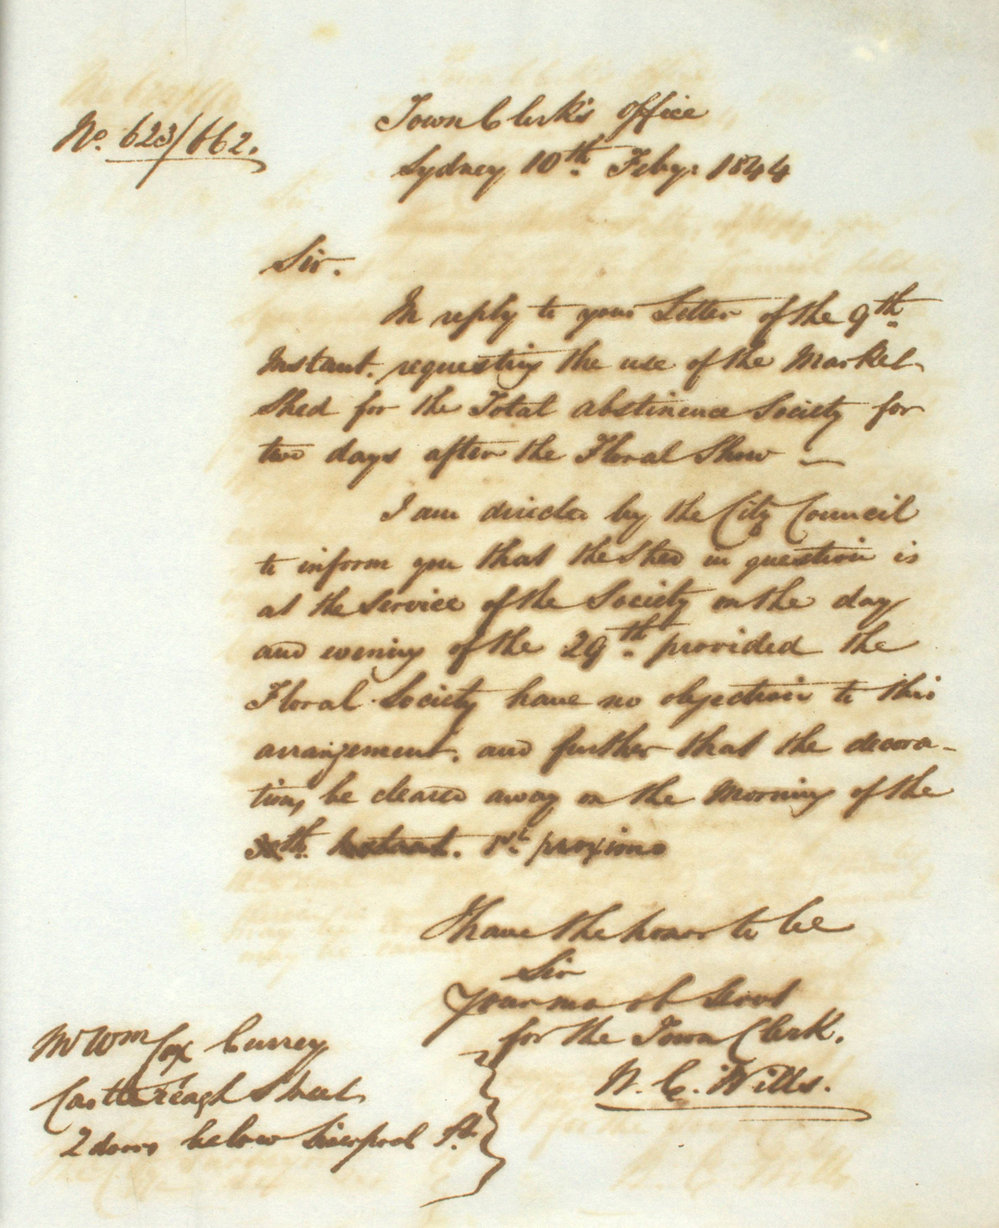 No. 623/662.
Town Clerk's Office
Sydney 10th Feby: 1844
Sir.
In reply to your Letter of the 9th
Instant. requesting the use of the Market
Shed for the Total abstinence Society for
two days after the Floral Show —
I am directed by the City Council
to inform you that the Shed in question is
at the Service of the Society on the day
and evening of the 29th. provided the
Floral Society have no objection to this
arrangement. and further that the decora-
tions be cleared away on the Morning of the
30th. Instant. 1st. proximo
I have the honor to be
Sir
Your mo ob Servt
for the Town Clerk.
W. C. Wills.
Mr Wm Cox Currey
Castlereagh Street
2 doors below Liverpool St.